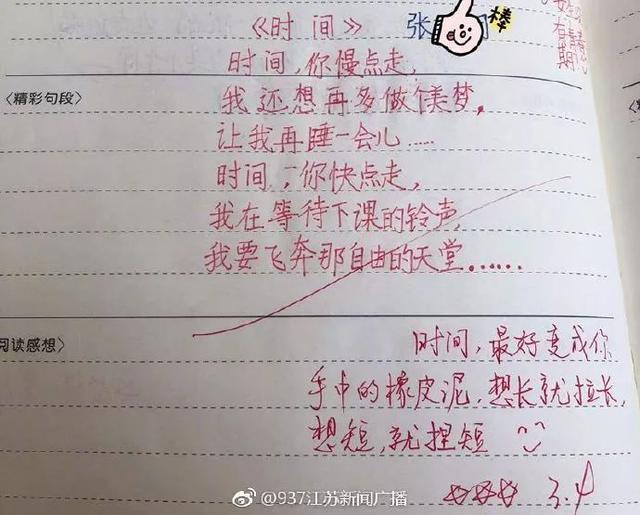 《时间》 张
棒
有
期
时间,你慢点走,
〈精彩句段〉
我还想再多做个美梦,
让我再睡一会儿……
时间,你快点走,
我在等待下课的铃声,
我要飞奔那自由的天堂……
阅读感想〉
时间,最好变成你
手中的橡皮泥,想长就拉长,
想短,就捏短
3.4
@937江苏新闻广播